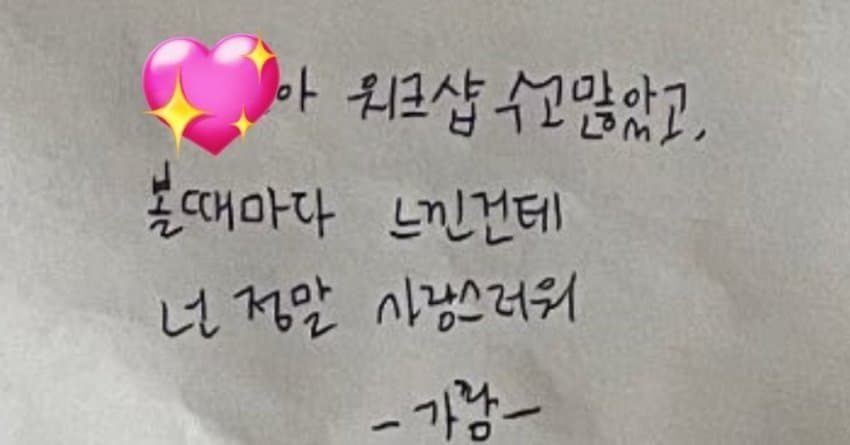 아 워크샵 수고많았고,
볼때마다 느낀건테
넌 정말 사랑스러워
-가람-